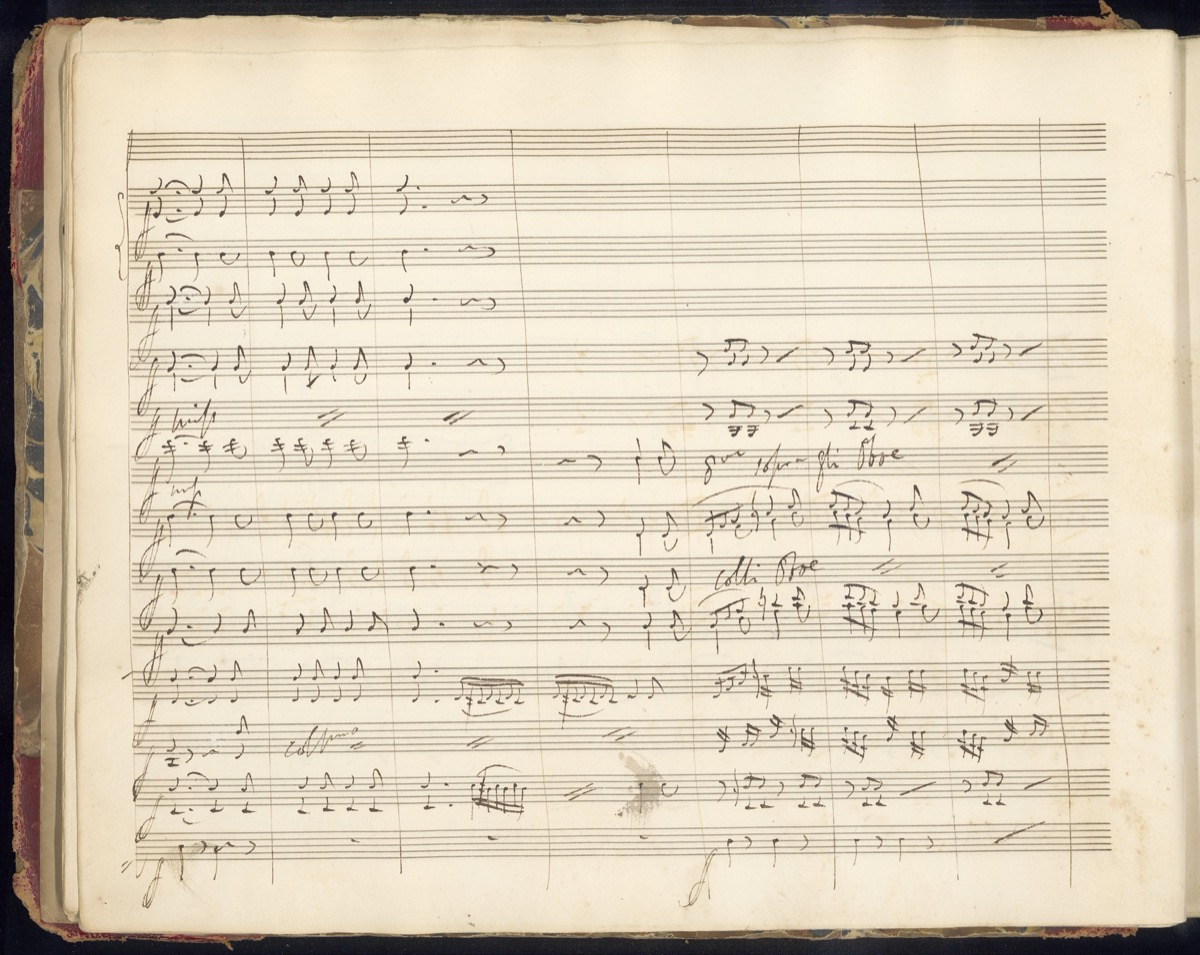 unis
8va sopra gli Oboe
unis
colli Oboe
col Primo